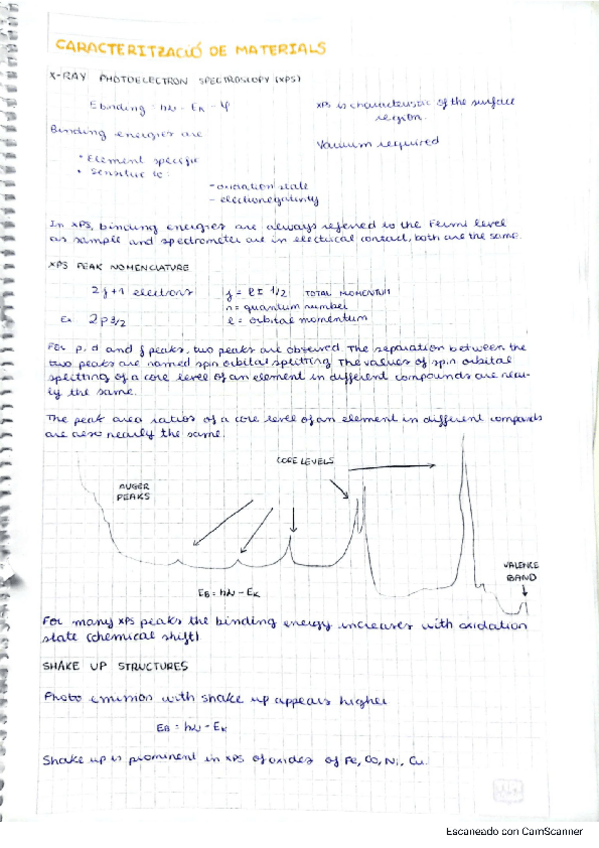 CARACTERITZACIÓ DE MATERIALS
X-RAY PHOTOELECTRON SPECTROSCOPY (XPS)
Ebinding = hν - EK - φ
XPS is characteristic of the surface
region.
Binding energies are
Vacuum required
• Element specific
• Sensitive to:
- oxidation state
- electronegativity
In XPS, binding energies are always referred to the Fermi level
as sample and spectrometer are in electrical contact, both are the same.
XPS PEAK NOMENCLATURE
2j+1 electrons
j = l ± 1/2 TOTAL MOMENTUM
n = quantum number
Ex 2p3/2
l = orbital momentum
For p, d and f peaks, two peaks are observed. The separation between the
two peaks are named spin orbital splitting. The values of spin orbital
splitting of a core level of an element in different compounds are near-
ly the same.
The peak area ratios of a core level of an element in different compounds
are also nearly the same.
CORE LEVELS
AUGER
PEAKS
VALENCE
BAND
EB = hν - EK
For many XPS peaks the binding energy increases with oxidation
state (chemical shift)
SHAKE UP STRUCTURES
Photo emission with shake up appears higher
EB = hν - EK
Shake up is prominent in XPS of oxides of Fe, Co, Ni, Cu.
Escaneado con CamScanner